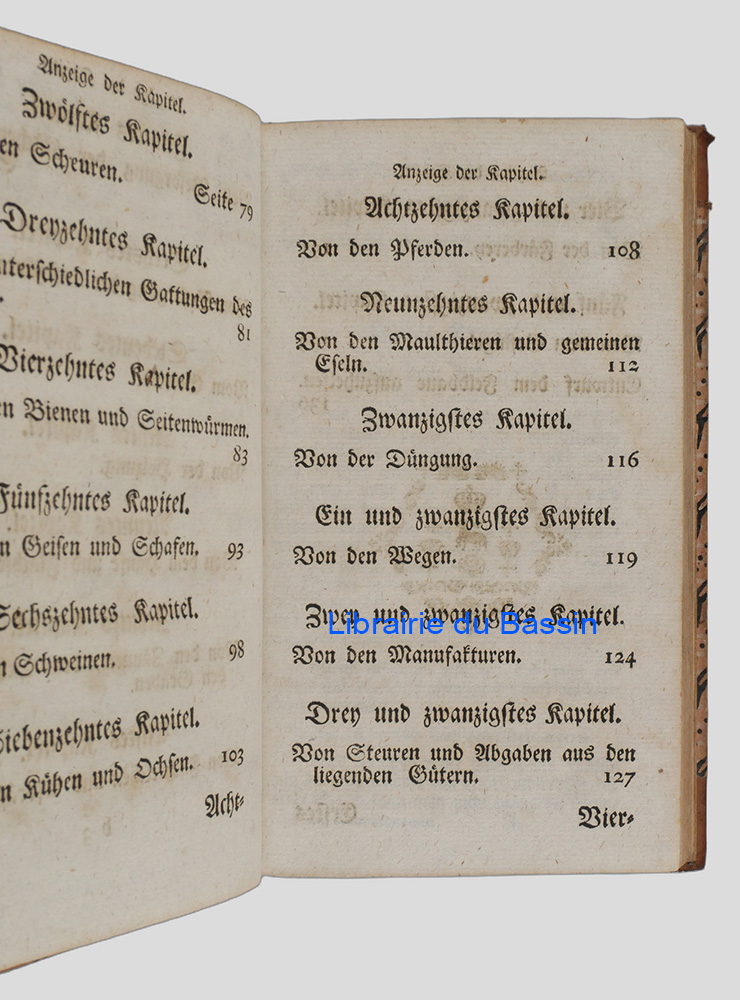 Anzeige der Kapitel.
Zwölftes Kapitel.
en Scheuren.
Seite 79
Dreyzehntes Kapitel.
nterschiedlichen Gattungen des
81
Vierzehntes Kapitel.
n Bienen und Seitenwürmen.
83
Fünfzehntes Kapitel.
n Geisen und Schafen. 93
Sechszehntes Kapitel.
n Schweinen. 98
Siebenzehntes Kapitel.
n Kühen und Ochsen. 103
Acht-
Anzeige der Kapitel.
Achtzehntes Kapitel.
Von den Pferden. 108
Neunzehntes Kapitel.
Von den Maulthieren und gemeinen
Eseln. 112
Zwanzigstes Kapitel.
Von der Düngung. 116
Ein und zwanzigstes Kapitel.
Von den Wegen. 119
Zwey und zwanzigstes Kapitel.
Librairie du Bassin
Von den Manufakturen. 124
Drey und zwanzigstes Kapitel.
Von Steuren und Abgaben aus den
liegenden Gütern. 127
Vier-